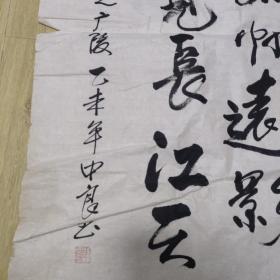 帆遠影
見長江天
之广陵 乙未年中良书